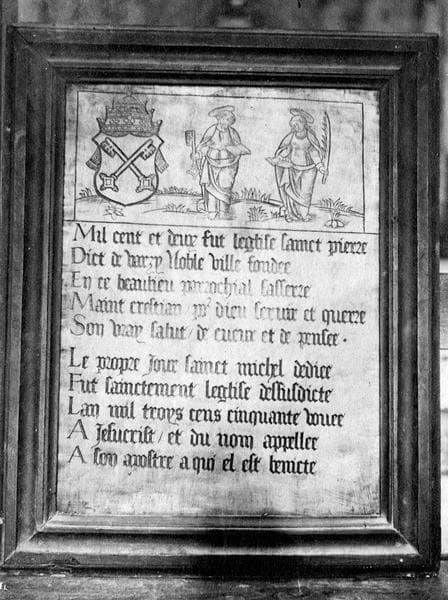 Mil cent et deux fut leglise sainct pierre
Dict de varzy Noble ville fondee
En ce beaulieu parrochial sasserre
Maint crestian pr dieu seruir et querre
Son vray salut / de cueur et de pensee .
Le propre Jour sainct michel dedice
Fut sainctement leglise dessusdicte
Lan mil troys cens cinquante vouee
A Jesucrist / et du nom appellee
A son apostre a qui el est benicte